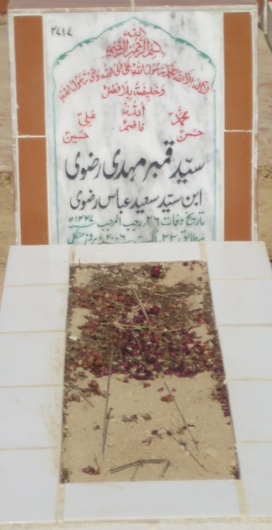 ۳۷۱۷
اللہ
بسم اللہ الرحمن الرحیم
لا الہ الا اللہ محمد رسول اللہ علی ولی اللہ وصی رسول اللہ
وخلیفتہ بلا فصل
محمد اللہ علی
حسن فاطمہ حسین
سید قمبر مہدی رضوی
ابن سید سعید عباس رضوی
تاریخ وفات ۲۶ رجب المرجب ۱۴۲۷ھ
مطابق ۲۲ ۲۰۰۶ بروز